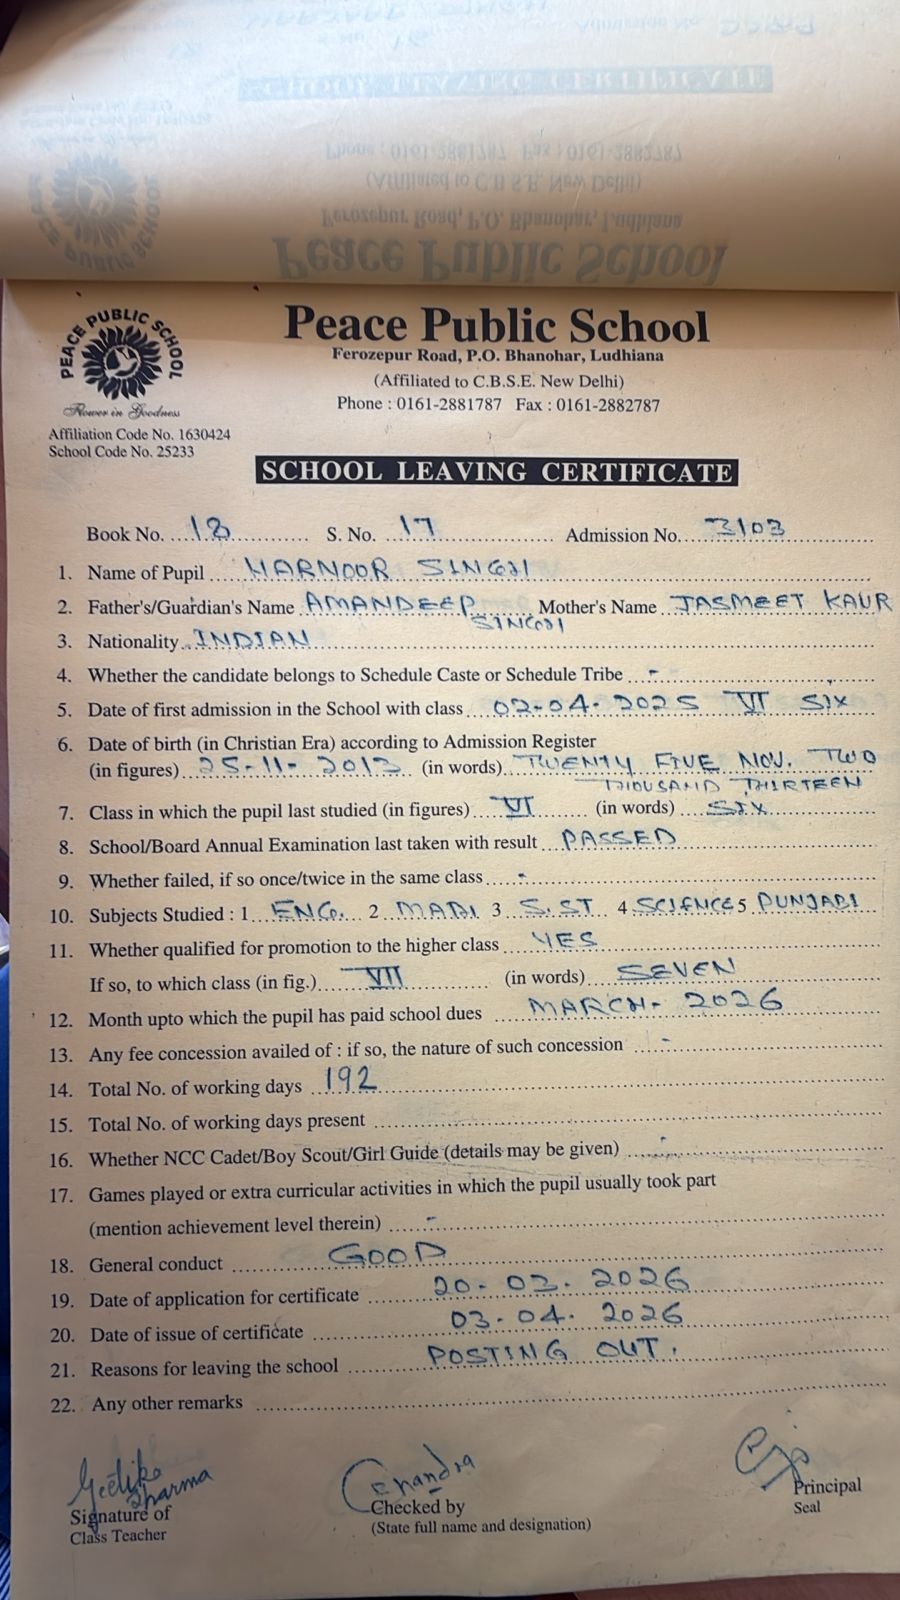 Peace Public School
Ferozepur Road, P.O. Bhanohar, Ludhiana
(Affiliated to C.B.S.E. New Delhi)
Phone : 0161-2881787 Fax : 0161-2882787
PEACE PUBLIC SCHOOL
Flower in Goodness
Affiliation Code No. 1630424
School Code No. 25233
SCHOOL LEAVING CERTIFICATE
Book No. 18 S. No. 17 Admission No. 3103
1. Name of Pupil HARNOOR SINGH
2. Father's/Guardian's Name AMANDEEP SINGH Mother's Name JASMEET KAUR
3. Nationality INDIAN
4. Whether the candidate belongs to Schedule Caste or Schedule Tribe -
5. Date of first admission in the School with class 02-04-2025 VI SIX
6. Date of birth (in Christian Era) according to Admission Register
(in figures) 25-11-2013 (in words) TWENTY FIVE NOV. TWO
THOUSAND THIRTEEN
7. Class in which the pupil last studied (in figures) VI (in words) SIX
8. School/Board Annual Examination last taken with result PASSED
9. Whether failed, if so once/twice in the same class -
10. Subjects Studied : 1 ENG. 2 3 S.ST 4 SCIENCE 5 PUNJABI
11. Whether qualified for promotion to the higher class YES
If so, to which class (in fig.) VII (in words) SEVEN
12. Month upto which the pupil has paid school dues MARCH- 2026
13. Any fee concession availed of : if so, the nature of such concession -
14. Total No. of working days 192
15. Total No. of working days present
16. Whether NCC Cadet/Boy Scout/Girl Guide (details may be given) -
17. Games played or extra curricular activities in which the pupil usually took part
(mention achievement level therein) -
18. General conduct GOOD
19. Date of application for certificate 20-03-2026
20. Date of issue of certificate 03-04-2026
21. Reasons for leaving the school POSTING OUT.
22. Any other remarks
Geetika Sharma
Signature of
Class Teacher
Chandra
Checked by
(State full name and designation)
Principal
Seal